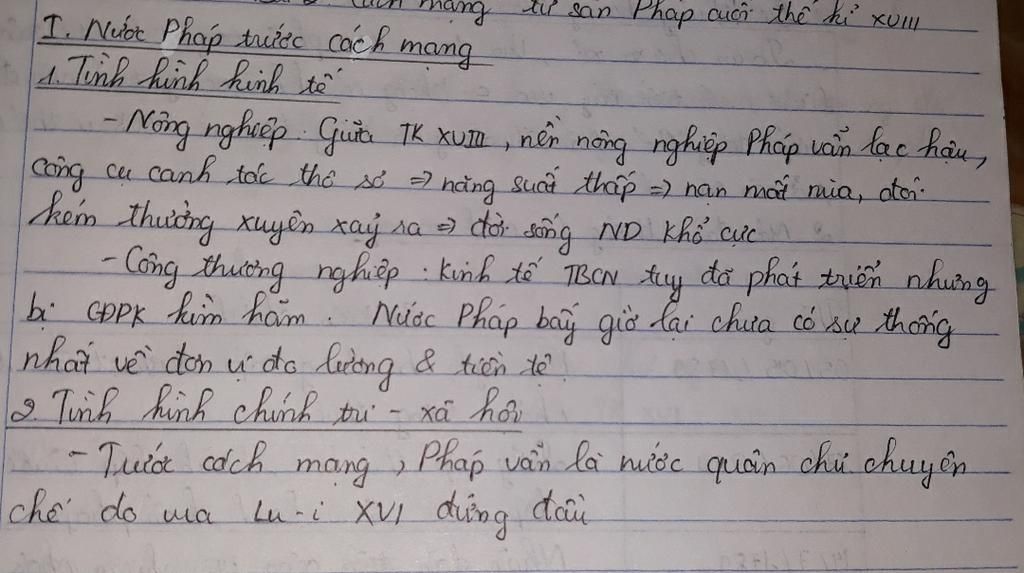 Cách mạng tư sản Pháp cuối thế kỉ XVIII
I. Nước Pháp trước cách mạng
1. Tình hình kinh tế
- Nông nghiệp. Giữa TK XVIII, nền nông nghiệp Pháp vẫn lạc hậu,
công cụ canh tác thô sơ => năng suất thấp => nạn mất mùa, đói
kém thường xuyên xảy ra => đời sống ND khổ cực
- Công thương nghiệp: Kinh tế TBCN tuy đã phát triển nhưng
bị CĐPK kìm hãm. Nước Pháp bấy giờ lại chưa có sự thống
nhất về đơn vị đo lường & tiền tệ.
2. Tình hình chính trị - xã hội
- Trước cách mạng, Pháp vẫn là nước quân chủ chuyên
chế do vua Lu-i XVI đứng đầu